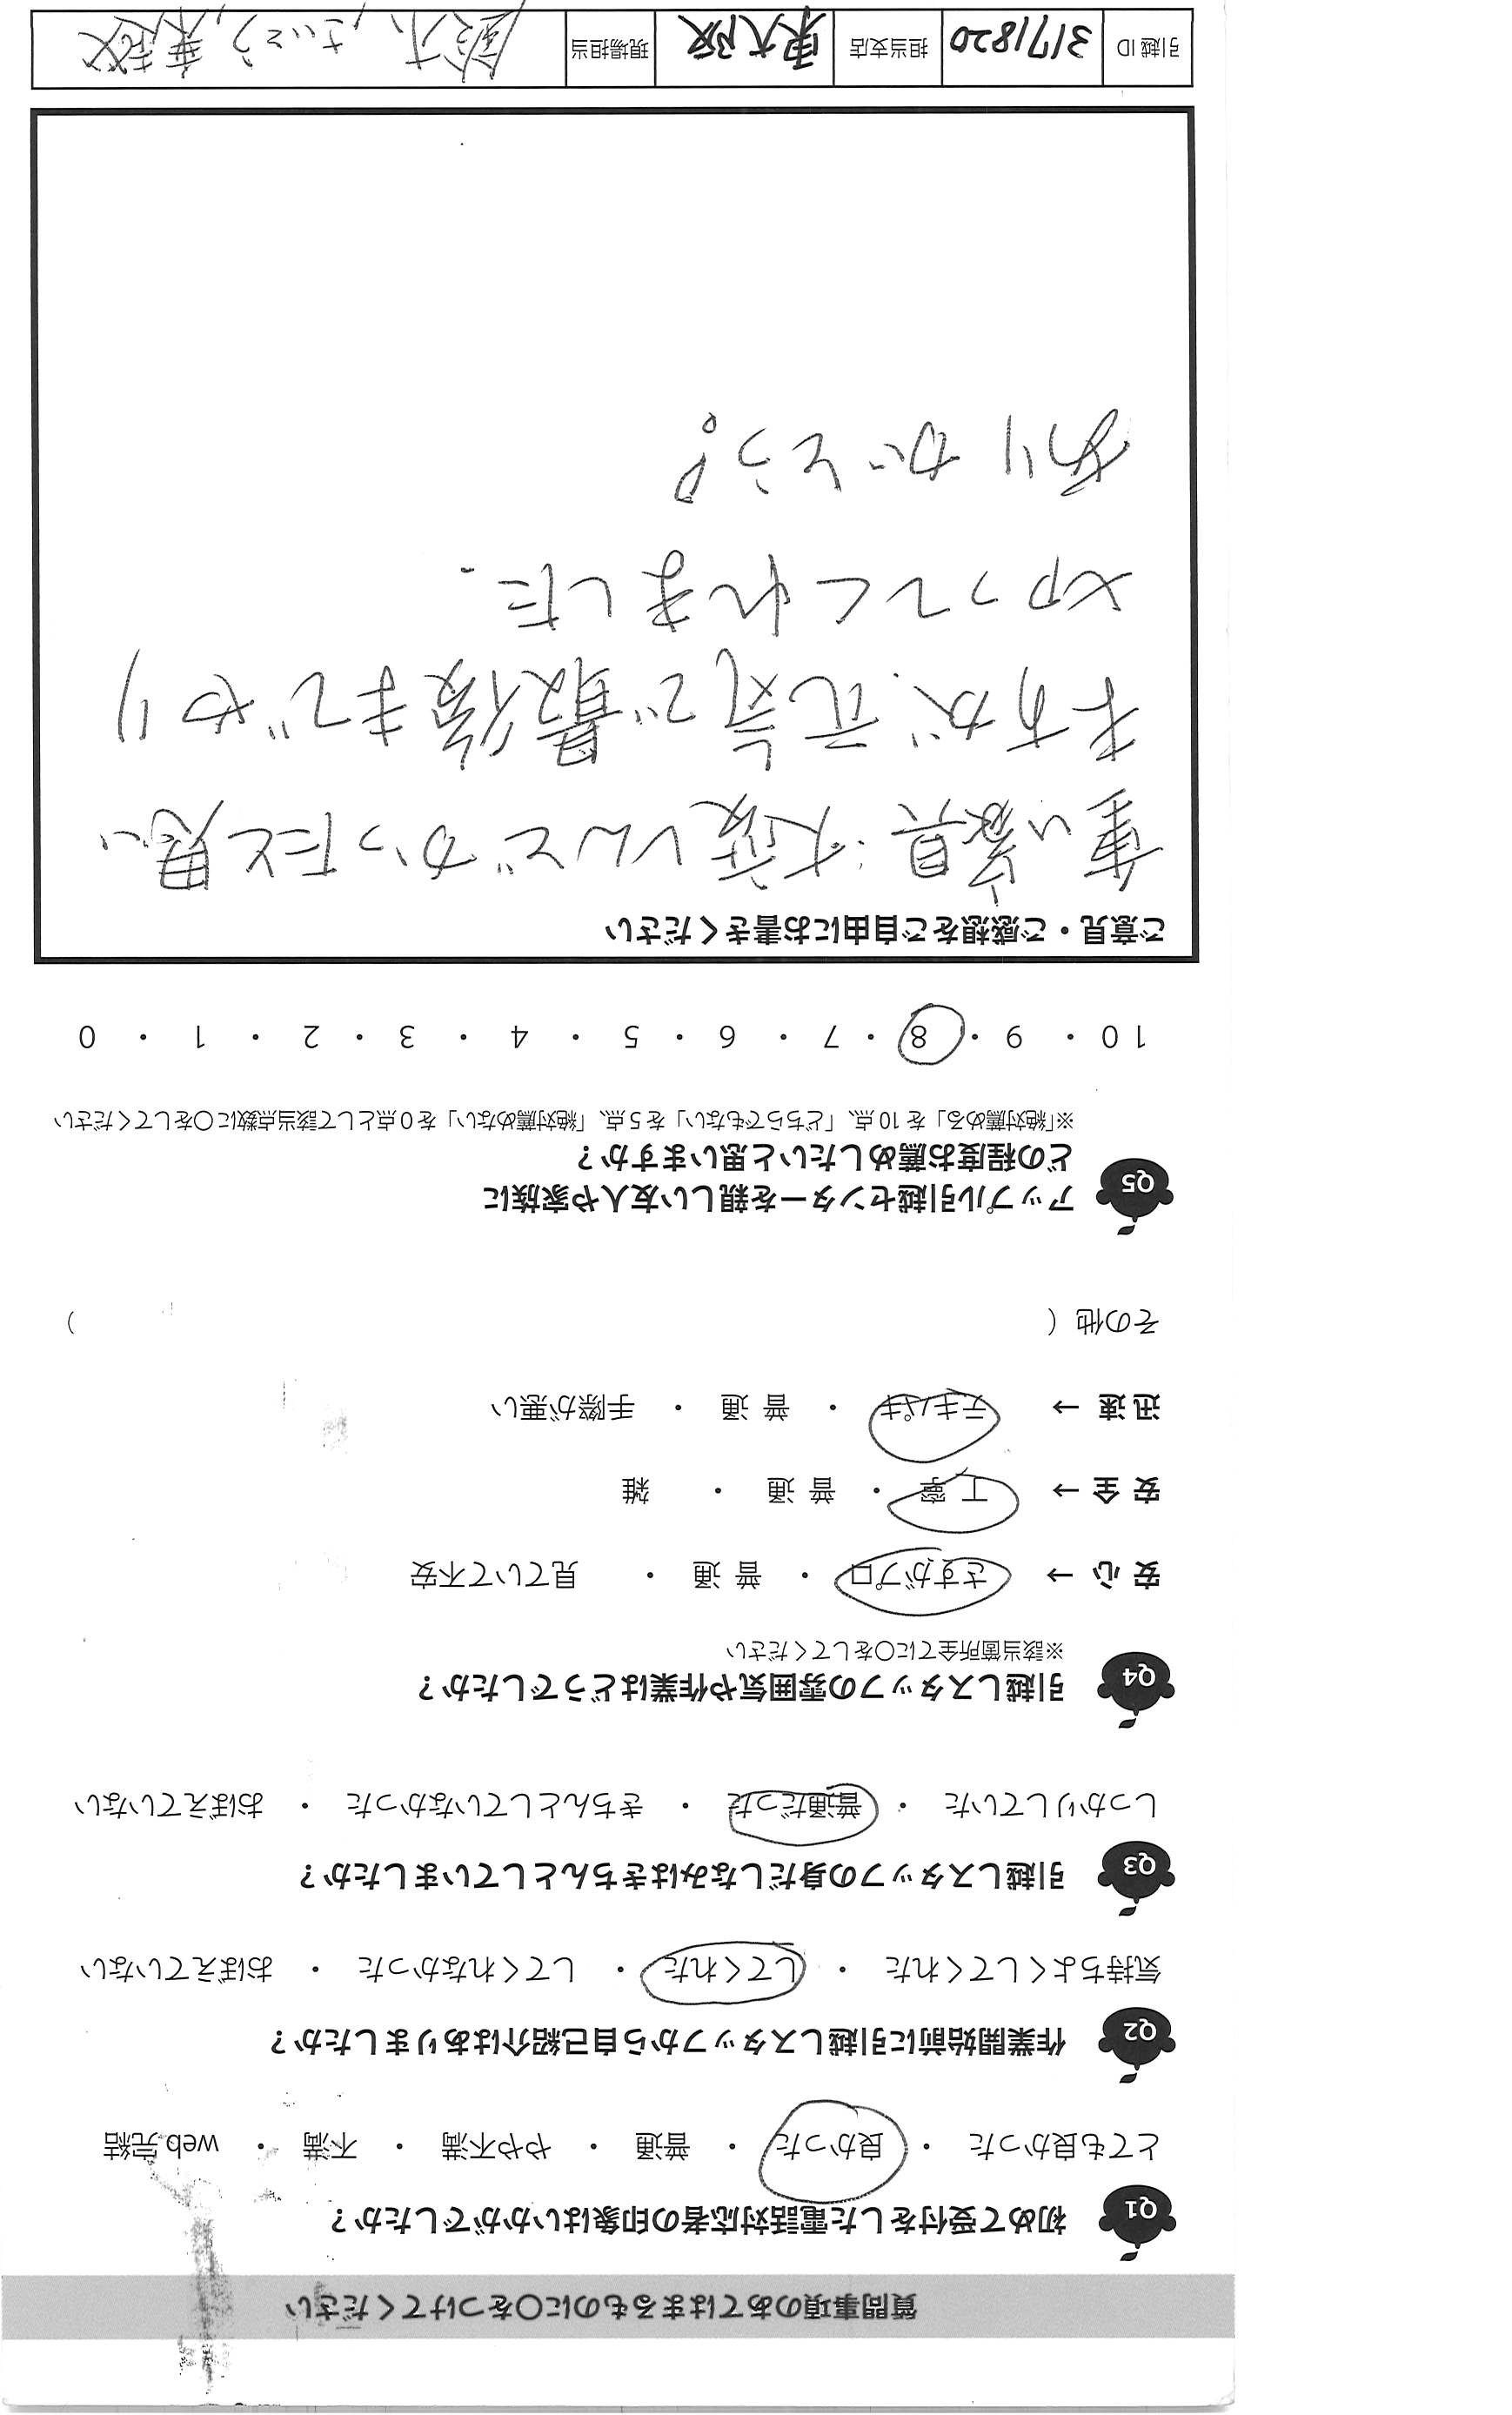 質問事項のあてはまるものに〇をつけてください
Q1 初めて受付をした電話対応者の印象はいかがでしたか？
とても良かった ・ 良かった ・ 普通 ・ やや不満 ・ 不満 ・ web完結
Q2 作業開始前に引越しスタッフから自己紹介はありましたか？
気持ちよくしてくれた ・ してくれた ・ してくれなかった ・ おぼえていない
Q3 引越しスタッフの身だしなみはきちんとしていましたか？
しっかりしていた ・ 普通だった ・ きちんとしていなかった ・ おぼえていない
Q4 引越しスタッフの雰囲気や作業はどうでしたか？
※該当箇所全てに〇をしてください
安心 → さすがプロ ・ 普通 ・ 見ていて不安
安全 → 丁寧 ・ 普通 ・ 雑
迅速 → テキパキ ・ 普通 ・ 手際が悪い
その他（ ）
Q5 アップル引越センターを親しい友人や家族に
どの程度お薦めしたいと思いますか？
※「絶対薦める」を10点、「どちらでもない」を5点、「絶対薦めない」を0点として該当点数に〇をしてください
10 ・ 9 ・ 8 ・ 7 ・ 6 ・ 5 ・ 4 ・ 3 ・ 2 ・ 1 ・ 0
ご意見・ご感想をご自由にお書きください
重い家具、大変しんどかったと思い
ますが、元気で最後までやり
切ってくれました.
ありがとう!
引越ID 3171820 担当支店 東大阪 現場担当 鈴木,さいとう,